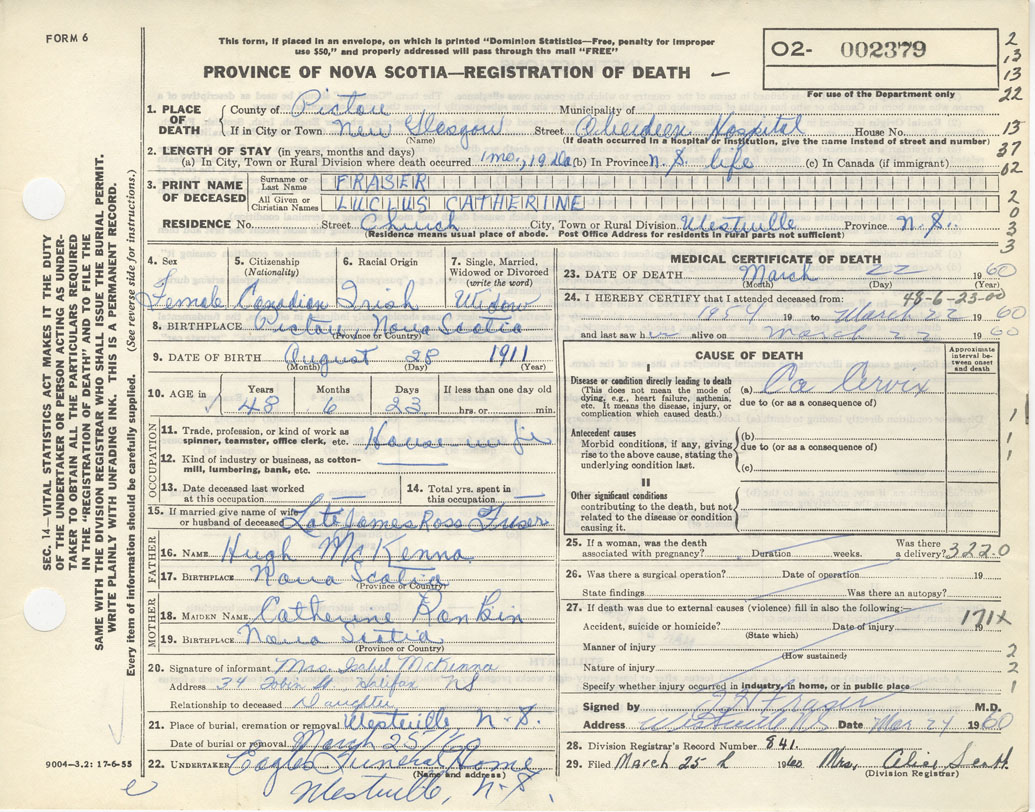 FORM 6
This form, if placed in an envelope, on which is printed "Dominion Statistics—Free, penalty for improper
use $50," and properly addressed will pass through the mail "FREE"
PROVINCE OF NOVA SCOTIA—REGISTRATION OF DEATH
02- 002379
For use of the Department only
2
13
13
22
13
37
02
2
0
3
3
SEC. 14—VITAL STATISTICS ACT MAKES IT THE DUTY
OF THE UNDERTAKER OR PERSON ACTING AS UNDER-
TAKER TO OBTAIN ALL THE PARTICULARS REQUIRED
IN THE "REGISTRATION OF DEATH" AND TO FILE THE
SAME WITH THE DIVISION REGISTRAR WHO SHALL ISSUE THE BURIAL PERMIT.
WRITE PLAINLY WITH UNFADING INK. THIS IS A PERMANENT RECORD.
Every item of information should be carefully supplied. (See reverse side for instructions.)
1. PLACE OF DEATH
County of Pictou Municipality of
If in City or Town New Glasgow Street Aberdeen Hospital House No.
(Name) (If death occurred in a hospital or institution, give the name instead of street and number)
2. LENGTH OF STAY (in years, months and days)
(a) In City, Town or Rural Division where death occurred 1 mo, 19 da (b) In Province N.S. life (c) In Canada (if immigrant)
3. PRINT NAME OF DECEASED
Surname or Last Name FRASER
All Given or Christian Names LUCLUS CATHERINE
RESIDENCE No. Street Church City, Town or Rural Division Westville Province N.S.
(Residence means usual place of abode. Post Office Address for residents in rural parts not sufficient)
4. Sex 5. Citizenship (Nationality) 6. Racial Origin 7. Single, Married, Widowed or Divorced (write the word)
Female Canadian Irish Widow
8. BIRTHPLACE Pictou, Nova Scotia
(Province or Country)
9. DATE OF BIRTH August 28 1911
(Month) (Day) (Year)
10. AGE in Years Months Days If less than one day old
48 6 23 hrs. or min.
OCCUPATION
11. Trade, profession, or kind of work as spinner, teamster, office clerk, etc. House-wife
12. Kind of industry or business, as cotton-mill, lumbering, bank, etc.
13. Date deceased last worked at this occupation
14. Total yrs. spent in this occupation
15. If married give name of wife or husband of deceased Late James Ross Fraser
FATHER
16. NAME Hugh McKenna
17. BIRTHPLACE Nova Scotia
(Province or Country)
MOTHER
18. MAIDEN NAME Catherine Rankin
19. BIRTHPLACE Nova Scotia
(Province or Country)
20. Signature of informant Mrs. Isabel McKenna
Address 34 Tobin St, Halifax NS
Relationship to deceased Daughter
21. Place of burial, cremation or removal Westville N.S.
Date of burial or removal March 25/60
22. UNDERTAKER Eagles Funeral Home
(Name and address)
Westville, N.S.
9004—3.2: 17-6-55
MEDICAL CERTIFICATE OF DEATH
23. DATE OF DEATH March 22 1960
(Month) (Day)
24. I HEREBY CERTIFY that I attended deceased from: 48-6-23-00
1954 19 to March 22 1960
and last saw h alive on March 22 1960
CAUSE OF DEATH
Approximate interval between onset and death
I
Disease or condition directly leading to death
(This does not mean the mode of dying, e.g., heart failure, asthenia, etc. It means the disease, injury, or complication which caused death.)
(a) Ca Cervix
due to (or as a consequence of)
Antecedent causes
Morbid conditions, if any, giving rise to the above cause, stating the underlying condition last.
(b)
due to (or as a consequence of)
(c)
II
Other significant conditions
contributing to the death, but not related to the disease or condition causing it.
1
1
1
25. If a woman, was the death associated with pregnancy? Duration weeks. Was there a delivery? 322.0
26. Was there a surgical operation? Date of operation 19
State findings Was there an autopsy?
27. If death was due to external causes (violence) fill in also the following:—
Accident, suicide or homicide? Date of injury 19 171X
(State which)
Manner of injury 2
(How sustained)
Nature of injury 2
Specify whether injury occurred in industry, in home, or in public place 1
Signed by Fraser M.D.
Address Westville NS Date Mar 24 1960
28. Division Registrar's Record Number 841.
29. Filed March 25 1960 Mrs. Alice
(Division Registrar)